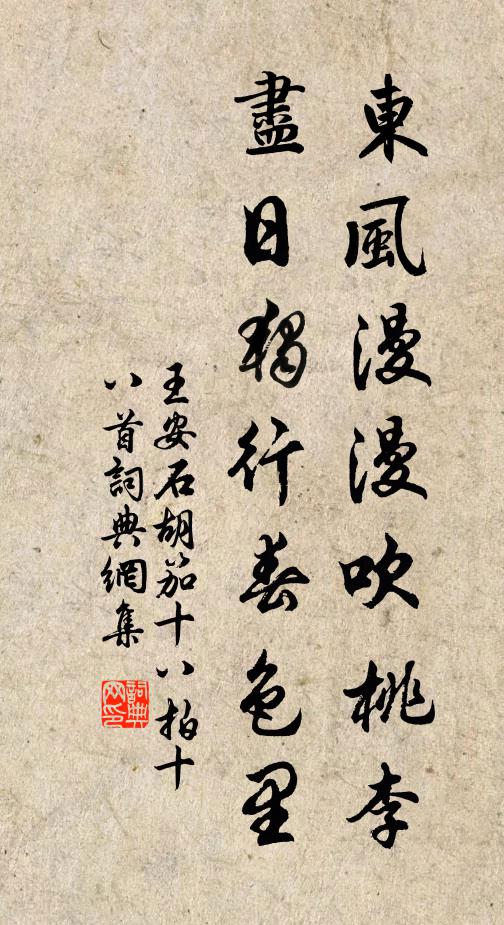 東風漫漫吹桃李
盡日獨行春色里
王安石胡笳十八拍十
八首詞典網集
詞典
网印